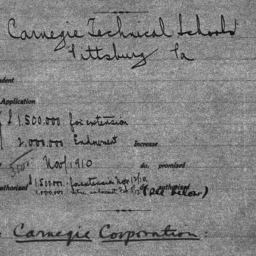 Carnegie Technical Schools
Pittsburg Pa
dent
Application
$1,500,000 for extension
2,000,000 Endowment Increase
Nov/1910 do. promised
uthorised $1,500,000 for extension Nov 15/10 authorised
1,000,000 (see below)
Carnegie Corporation: